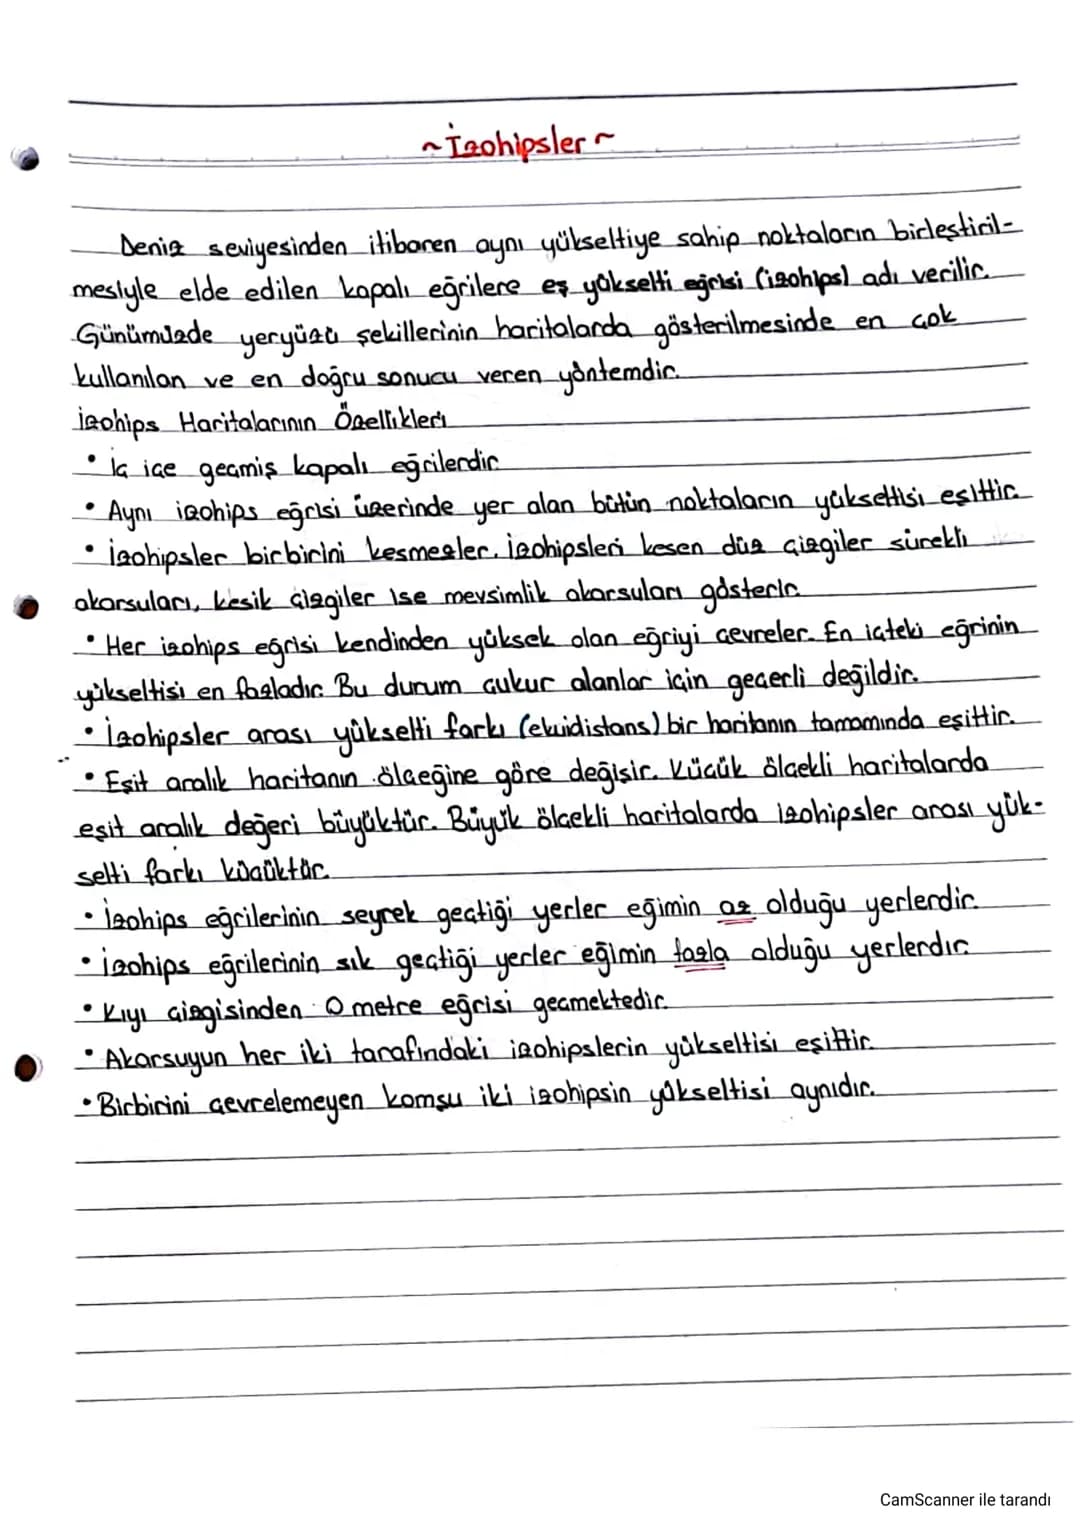 ~İzohipsler~
Deniz seviyesinden itibaren aynı yükseltiye sahip noktaların birleştiril-
mesiyle elde edilen kapalı eğrilere eş yükselti eğrisi (izohips) adı verilir.
Günümüzde yeryüzü şekillerinin haritalarda gösterilmesinde en çok
kullanılan ve en doğru sonucu veren yöntemdir.
İzohips Haritalarının Özellikleri
• İç içe geçmiş kapalı eğrilerdir
• Aynı izohips eğrisi üzerinde yer alan bütün noktaların yükseltisi eşittir.
• İzohipsler birbirini kesmezler. İzohipsleri kesen düz çizgiler sürekli
akarsuları, kesik çizgiler ise mevsimlik akarsuları gösterir.
• Her izohips eğrisi kendinden yüksek olan eğriyi çevreler. En içteki eğrinin
yükseltisi en fazladır. Bu durum çukur alanlar için geçerli değildir.
• İzohipsler arası yükselti farkı (ekuidistans) bir haritanın tamamında eşittir.
• Eşit aralık haritanın ölçeğine göre değişir. Küçük ölçekli haritalarda
eşit aralık değeri büyüktür. Büyük ölçekli haritalarda izohipsler arası yük-
selti farkı küçüktür.
• İzohips eğrilerinin seyrek geçtiği yerler eğimin az olduğu yerlerdir.
• İzohips eğrilerinin sık geçtiği yerler eğimin fazla olduğu yerlerdir.
• Kıyı çizgisinden 0 metre eğrisi geçmektedir.
• Akarsuyun her iki tarafındaki izohipslerin yükseltisi eşittir.
• Birbirini çevrelemeyen komşu iki izohipsin yükseltisi aynıdır.
CamScanner ile tarandı